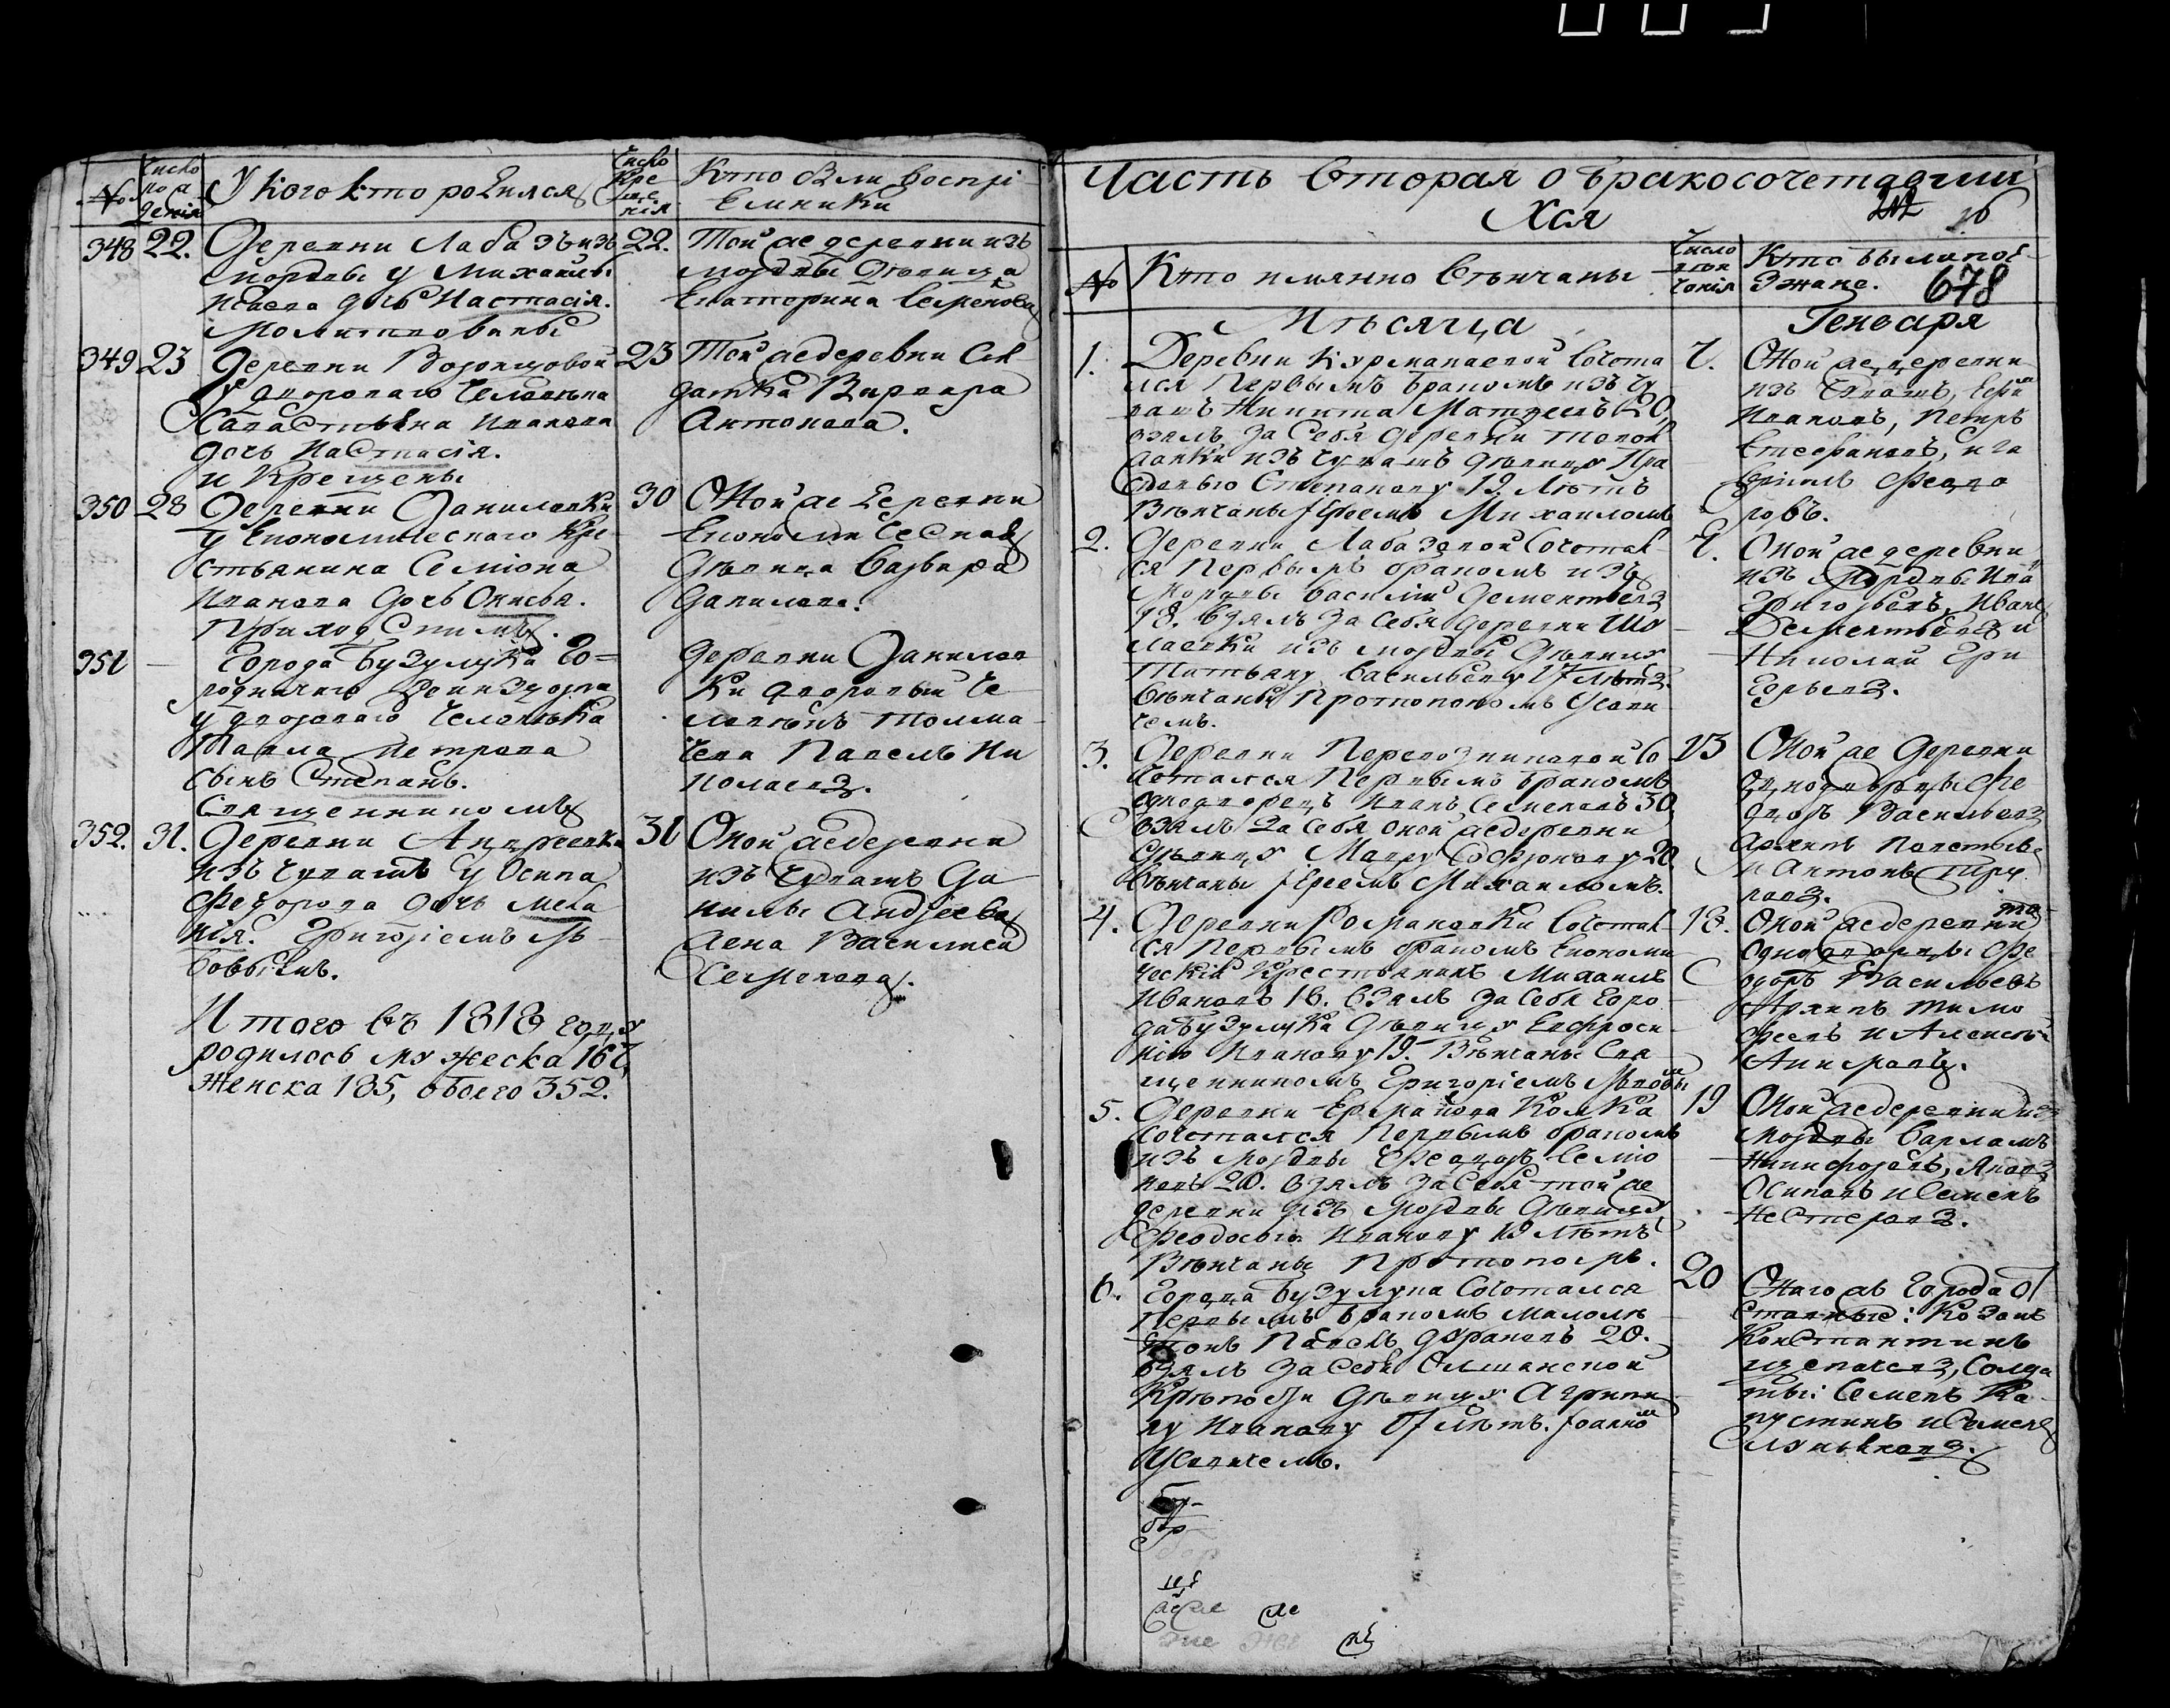 №
Число рож
дения
У кого кто родился
Число
кре
ще
ния
Кто были воспрі
емники
348 22. Деревни Лабазъ изъ
мордвы у Михайлы
Исаева дочь Настасія.
Молитвованы
22. Той же деревни изъ
мордвы девица
Екатерина Семенова
349 23 Деревни Воронцовой
у двороваго человека
Савастьяна Иванова
дочь Настасія.
и крещены
23 Той же деревни Сол
датка Варвара
Антонова.
350 28 Деревни Даниловки
у Економическаго кре
стьянина Семіона
Иванова дочь Онисья.
Приходскимъ.
30 Оной же деревни
Економическая
девица Варвара
Данилова.
351 — Города Бузулука го=
родничаго
у двороваго человека
Павла Петрова
сынъ Степанъ.
Священникомъ
Деревни Данилов
ки дворовый че
ловекъ Толма
чева Павелъ Ни
колаевъ.
352. 31. Деревни Андреевки
изъ чувашъ у Осипа
Федорова дочь Мела
нія. Григоріемъ Ль
вовымъ.
31 Оной же деревни
изъ чувашъ Да
нилы Андреева
жена Василиса
Семенова.
Итого въ 1818 году
родилось мужеска 167,
женска 185, обоего 352.
Часть вторая о бракосочетавши
хся
212 16
№
Кто имянно венчаны
Число
вен
чания
Кто были поѣ
зжане. 678
Месяца Генваря
1. Деревни Курманаевой сочета
лся первымъ бракомъ изъ чу
вашъ Никита Матвеевъ 20,
взялъ за себя деревни Толок
ловки изъ чувашъ девицу Пра
сковью Степанову 19. летъ
Венчаны Іереемъ Михаиломъ
7. Оной же деревни
изъ чувашъ,
Ивановъ, Петръ
Стефановъ, и Га
врилъ Федо
ровъ.
2. Деревни Лабазовой сочетал
ся первымъ бракомъ изъ
мордвы Василій Дементьевъ
18. взялъ за себя деревни
изъ мордвы девицу
Татьяну Васильеву 17 летъ.
венчаны Протопопомъ Усоли
чемъ.
7. Оной же деревни
изъ мордвы
Григорьевъ, Иванъ
Дементьевъ и
Николай Гри
горьевъ.
3. Деревни Перевозниковой со
четался первымъ бракомъ
однодворецъ Иванъ Семеновъ 30.
взялъ за себя оной же деревни
девицу Мавру Софронову 20.
Венчаны Іереемъ Михаиломъ.
13 Оной же деревни
однодворцы Фе
доръ Васильевъ
Архипъ
и Антонъ
4. Деревни Романовки сочетал
ся первымъ бракомъ Економи
ческій крестьянинъ Михаилъ
Ивановъ 18. взялъ за себя горо
да Бузулука девицу Евфроси
нію Иванову 19. Венчаны Свя
щенникомъ Григоріемъ Львовы
18. Оной же деревни
однодворцы Фе
доръ Васильевъ
Архипъ Тимо
феевъ и Алексей
Акимовъ.
5. Деревни
сочетался первымъ бракомъ
изъ мордвы Федоръ Семіо
новъ 20. взялъ за себя той же
деревни изъ мордвы девицу
Феодосью Иванову 19 летъ
Венчаны Протопопомъ.
19 Оной же деревни изъ
мордвы Варламъ
Никифоровъ, Яковъ
Осиповъ и Семенъ
Нестеровъ.
6. Города Бузулука сочетался
первымъ бракомъ малоле
токъ Павелъ 20.
взялъ за себя Олшанской
крепости девицу Агрипи
ну Иванову 17 летъ. Іоанно
Усоличемъ.
20 Онаго жъ города от
ставные: козакъ
Константинъ
солда
ты: Семенъ Ка
пустинъ и Семенъ